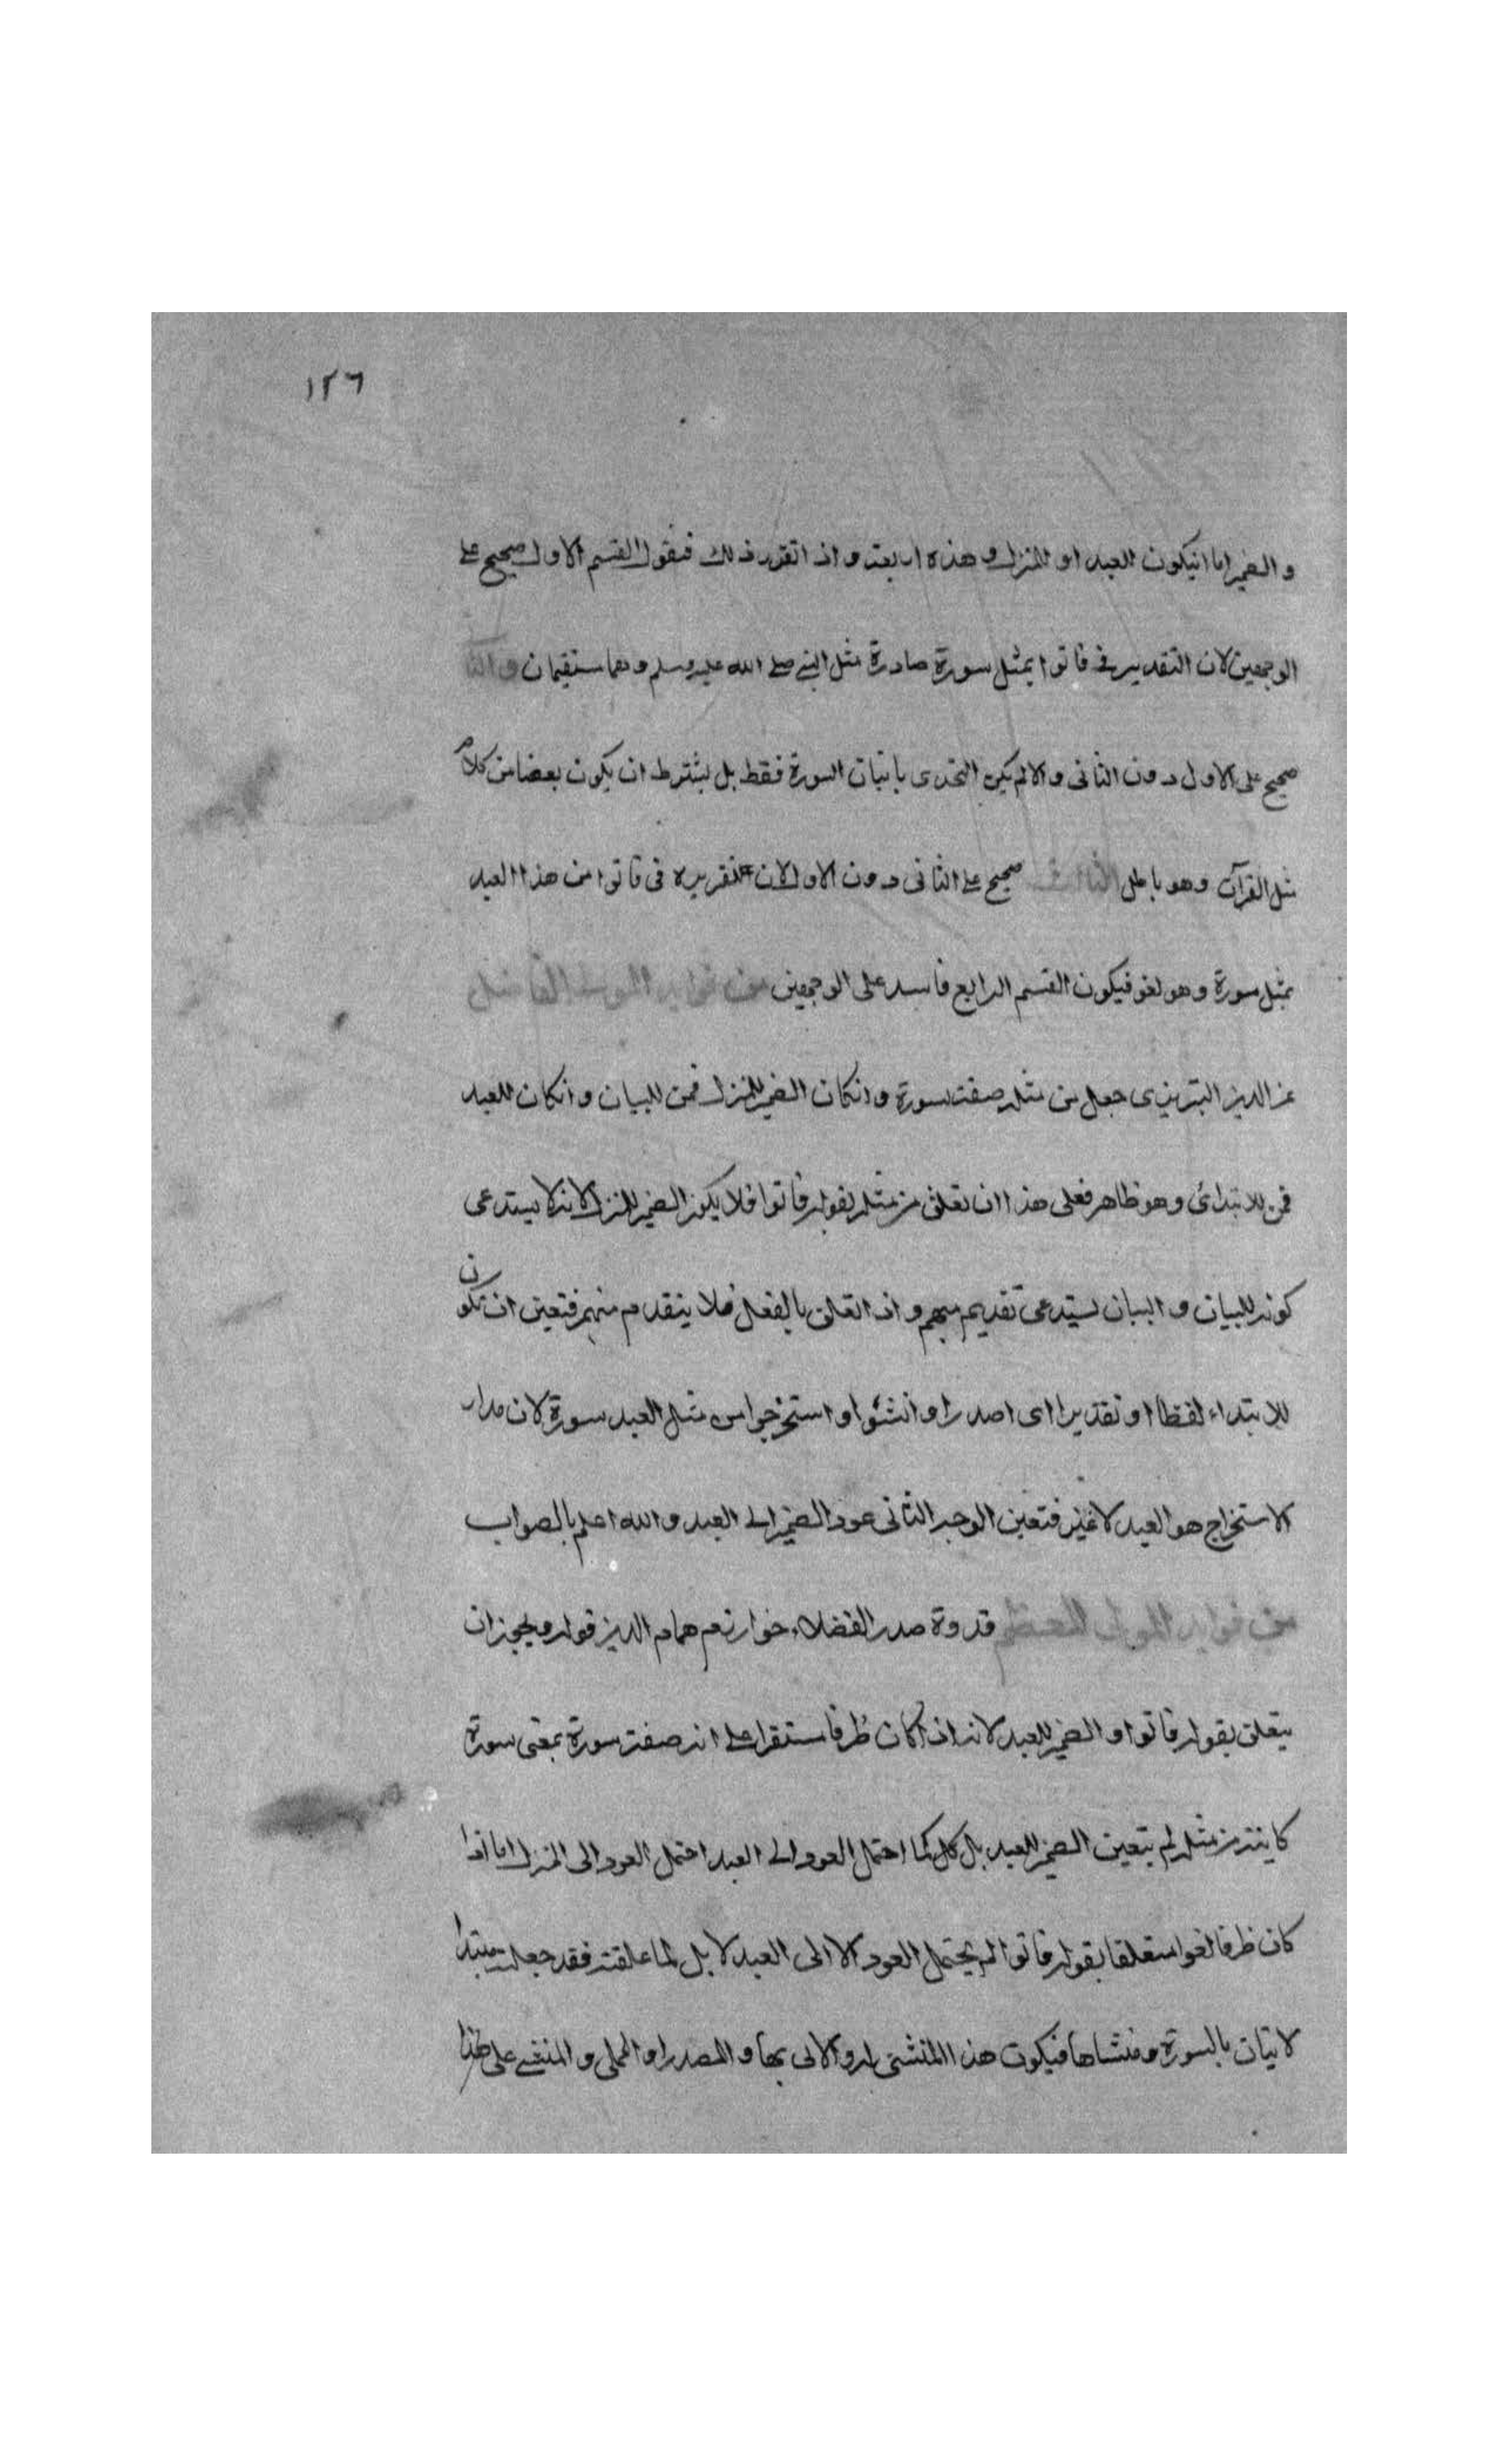 ١٢٦
والضمير اما انيكون للعبد او للمنزل وهذه اربعة واذا تقرر ذلك فنقول القسم الاول صحيح على
الوجهين لان التقدير في فاتوا بمثل سورة صادرة مثل النبي صلى الله عليه وسلم وهما مستقيمان والثا
صحيح على الاول دون الثاني والا لم يكن التحدى باتيان السورة فقط بل يشترط ان يكون بعضا من كلام
مثل القرآن وهو باطل الثالث صحيح على الثاني دون الاول لان تقريره في فاتوا من هذا العبد
بمثل سورة وهو لغو فيكون القسم الرابع فاسد على الوجهين من فوايد المولى الفاضل
عز الدين التبريزى جعل من مثله صفة سورة وانكان الضمير للمنزل فمن للبيان وانكان للعبد
فمن للابتدائ وهو ظاهر فعلى هذا ان تعلق من مثله بقوله فاتوا فلا يكون الضمير للمنزل لانه لا يستدعى
كونه للبيان والبيان يستدعى تقديم مبهم واذا تعلق بالفعل فلا يتقدم مبهم فتعين ان تكون
للابتداء لفظا او تقديرا اى اصدرا وانشئوا واستخرجوا من مثل العبد سورة لان مدار
الاستخراج هو العبد لا غير فتعين الوجه الثانى عود الضمير الى العبد والله اعلم بالصواب
من فوايد المولى المعظم قدوة صدر الفضلاء خوارزم همام الدين قوله ويجوز ان
يتعلق بقوله فاتوا والضمير للعبد لانه اذا كان ظرفا مستقرا على انه صفة سورة بمعنى سورة
كاينة من مثله لم يتعين الضمير للعبد بل كل كما احتمل العود الى العبد احتمل العود الى المنزل اما اذا
كان ظرفا لغوا متعلقا بقوله فاتوا لم يحتمل العود الا الى العبد لا بل لما علقته فقد جعلت مبتدا
لاتيان بالسورة ومنشاها فيكون هذا المنشئ له والاتى بها والمصدر او المملى والمنشئ على هذا